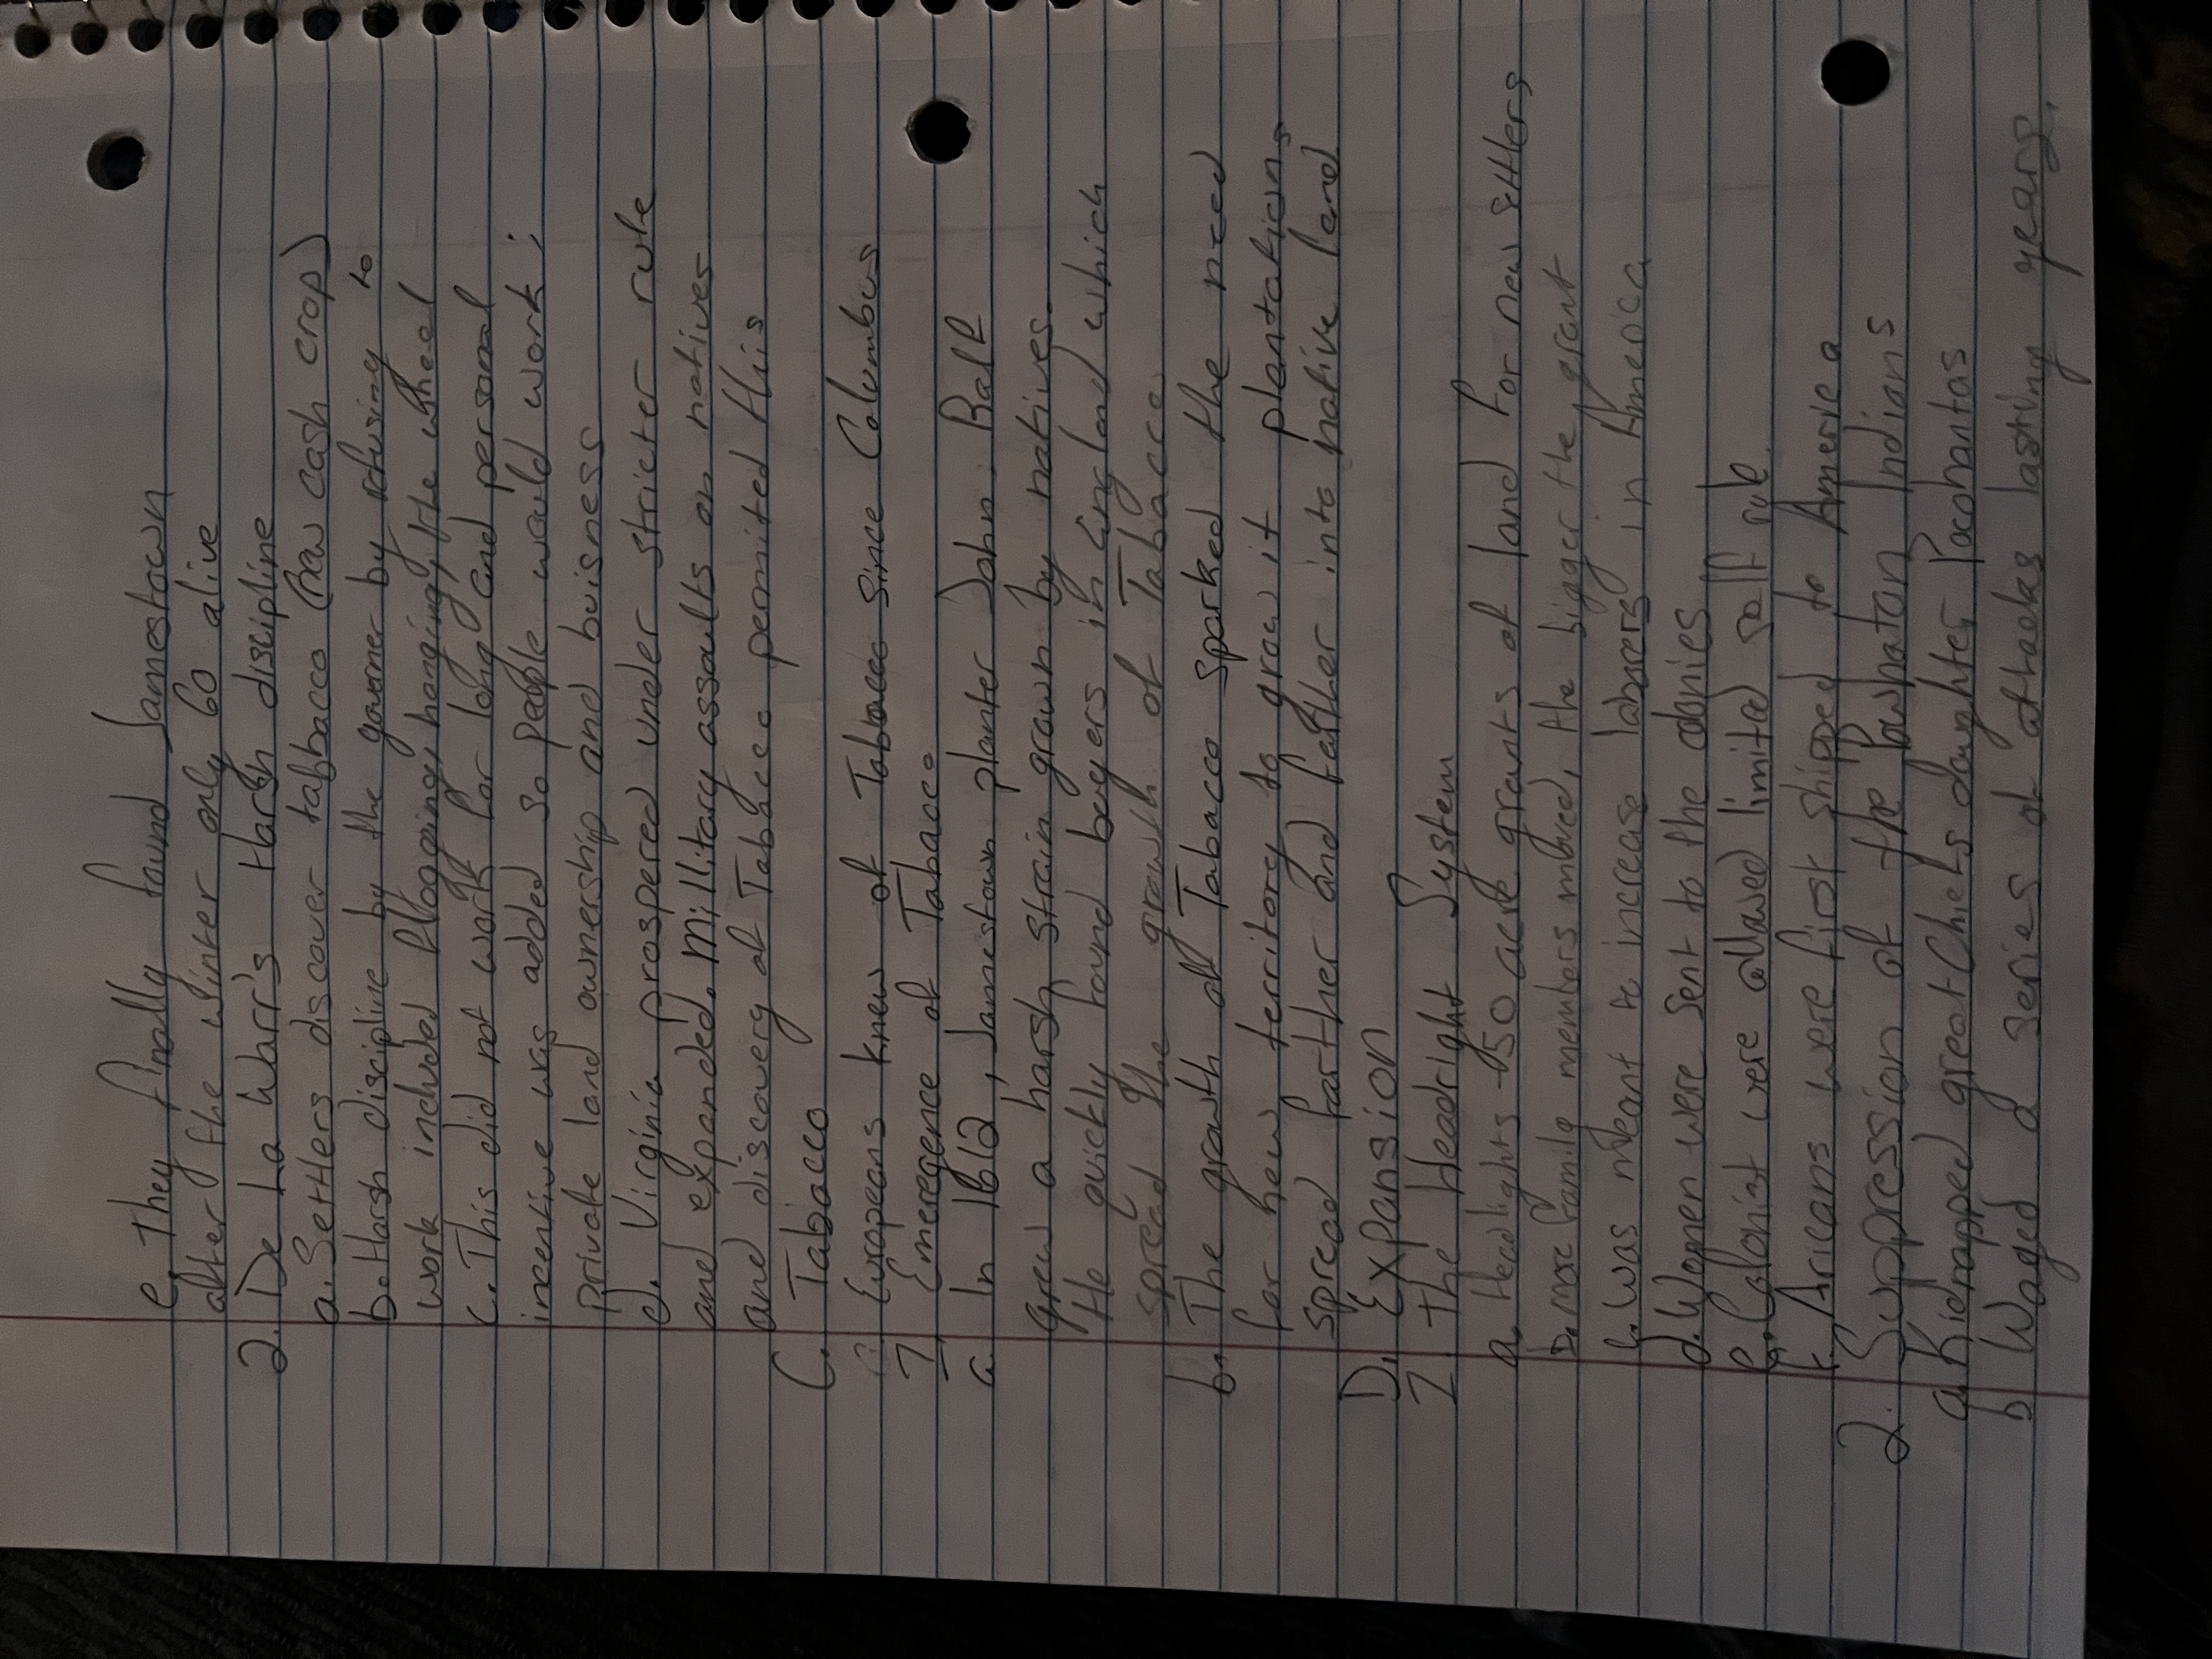 e. They finally found Jamestown
after the winter only 60 alive
2. De La Warr's Harsh discipline
a. Settlers discover tabbacco (new cash crop)
b. Harsh discipline by the governer by refusing to
work included flogging, hanging, the wheel
c. This did not work for long and personal
incentive was added so people would work;
Private land ownership and buisness
d. Virginia prospered under stricter rule
and expanded. Millitary assaults on natives
and discovery of Tabacco permited this
C. Tabacco
Europeans knew of Tabacco since Columbus
1. Emeregence of Tabacco
a. In 1612, Jamestown planter John Ralf
grew a harsh strain grown by natives.
He quickly found buyers in England which
spread the growth of Tabacco.
b. The growth of Tabacco sparked the need
for new territory to grow it plantations
spread farther and father into native land
D. Expansion
1. The Headright System
a. Headlights - 50 acre grants of land for new settlers
b. more family members moved, the bigger the grant
was meant to increase laborers in America
d. Women were sent to the colonies
e. Colonist were allowed limited self rule
f. Aricans were first shipped to America
2. Suppression of the Powhatan Indians
a. Kidnapped great Chiefs daughter, Pocohantas
b Waged a series of attacks lasting years.